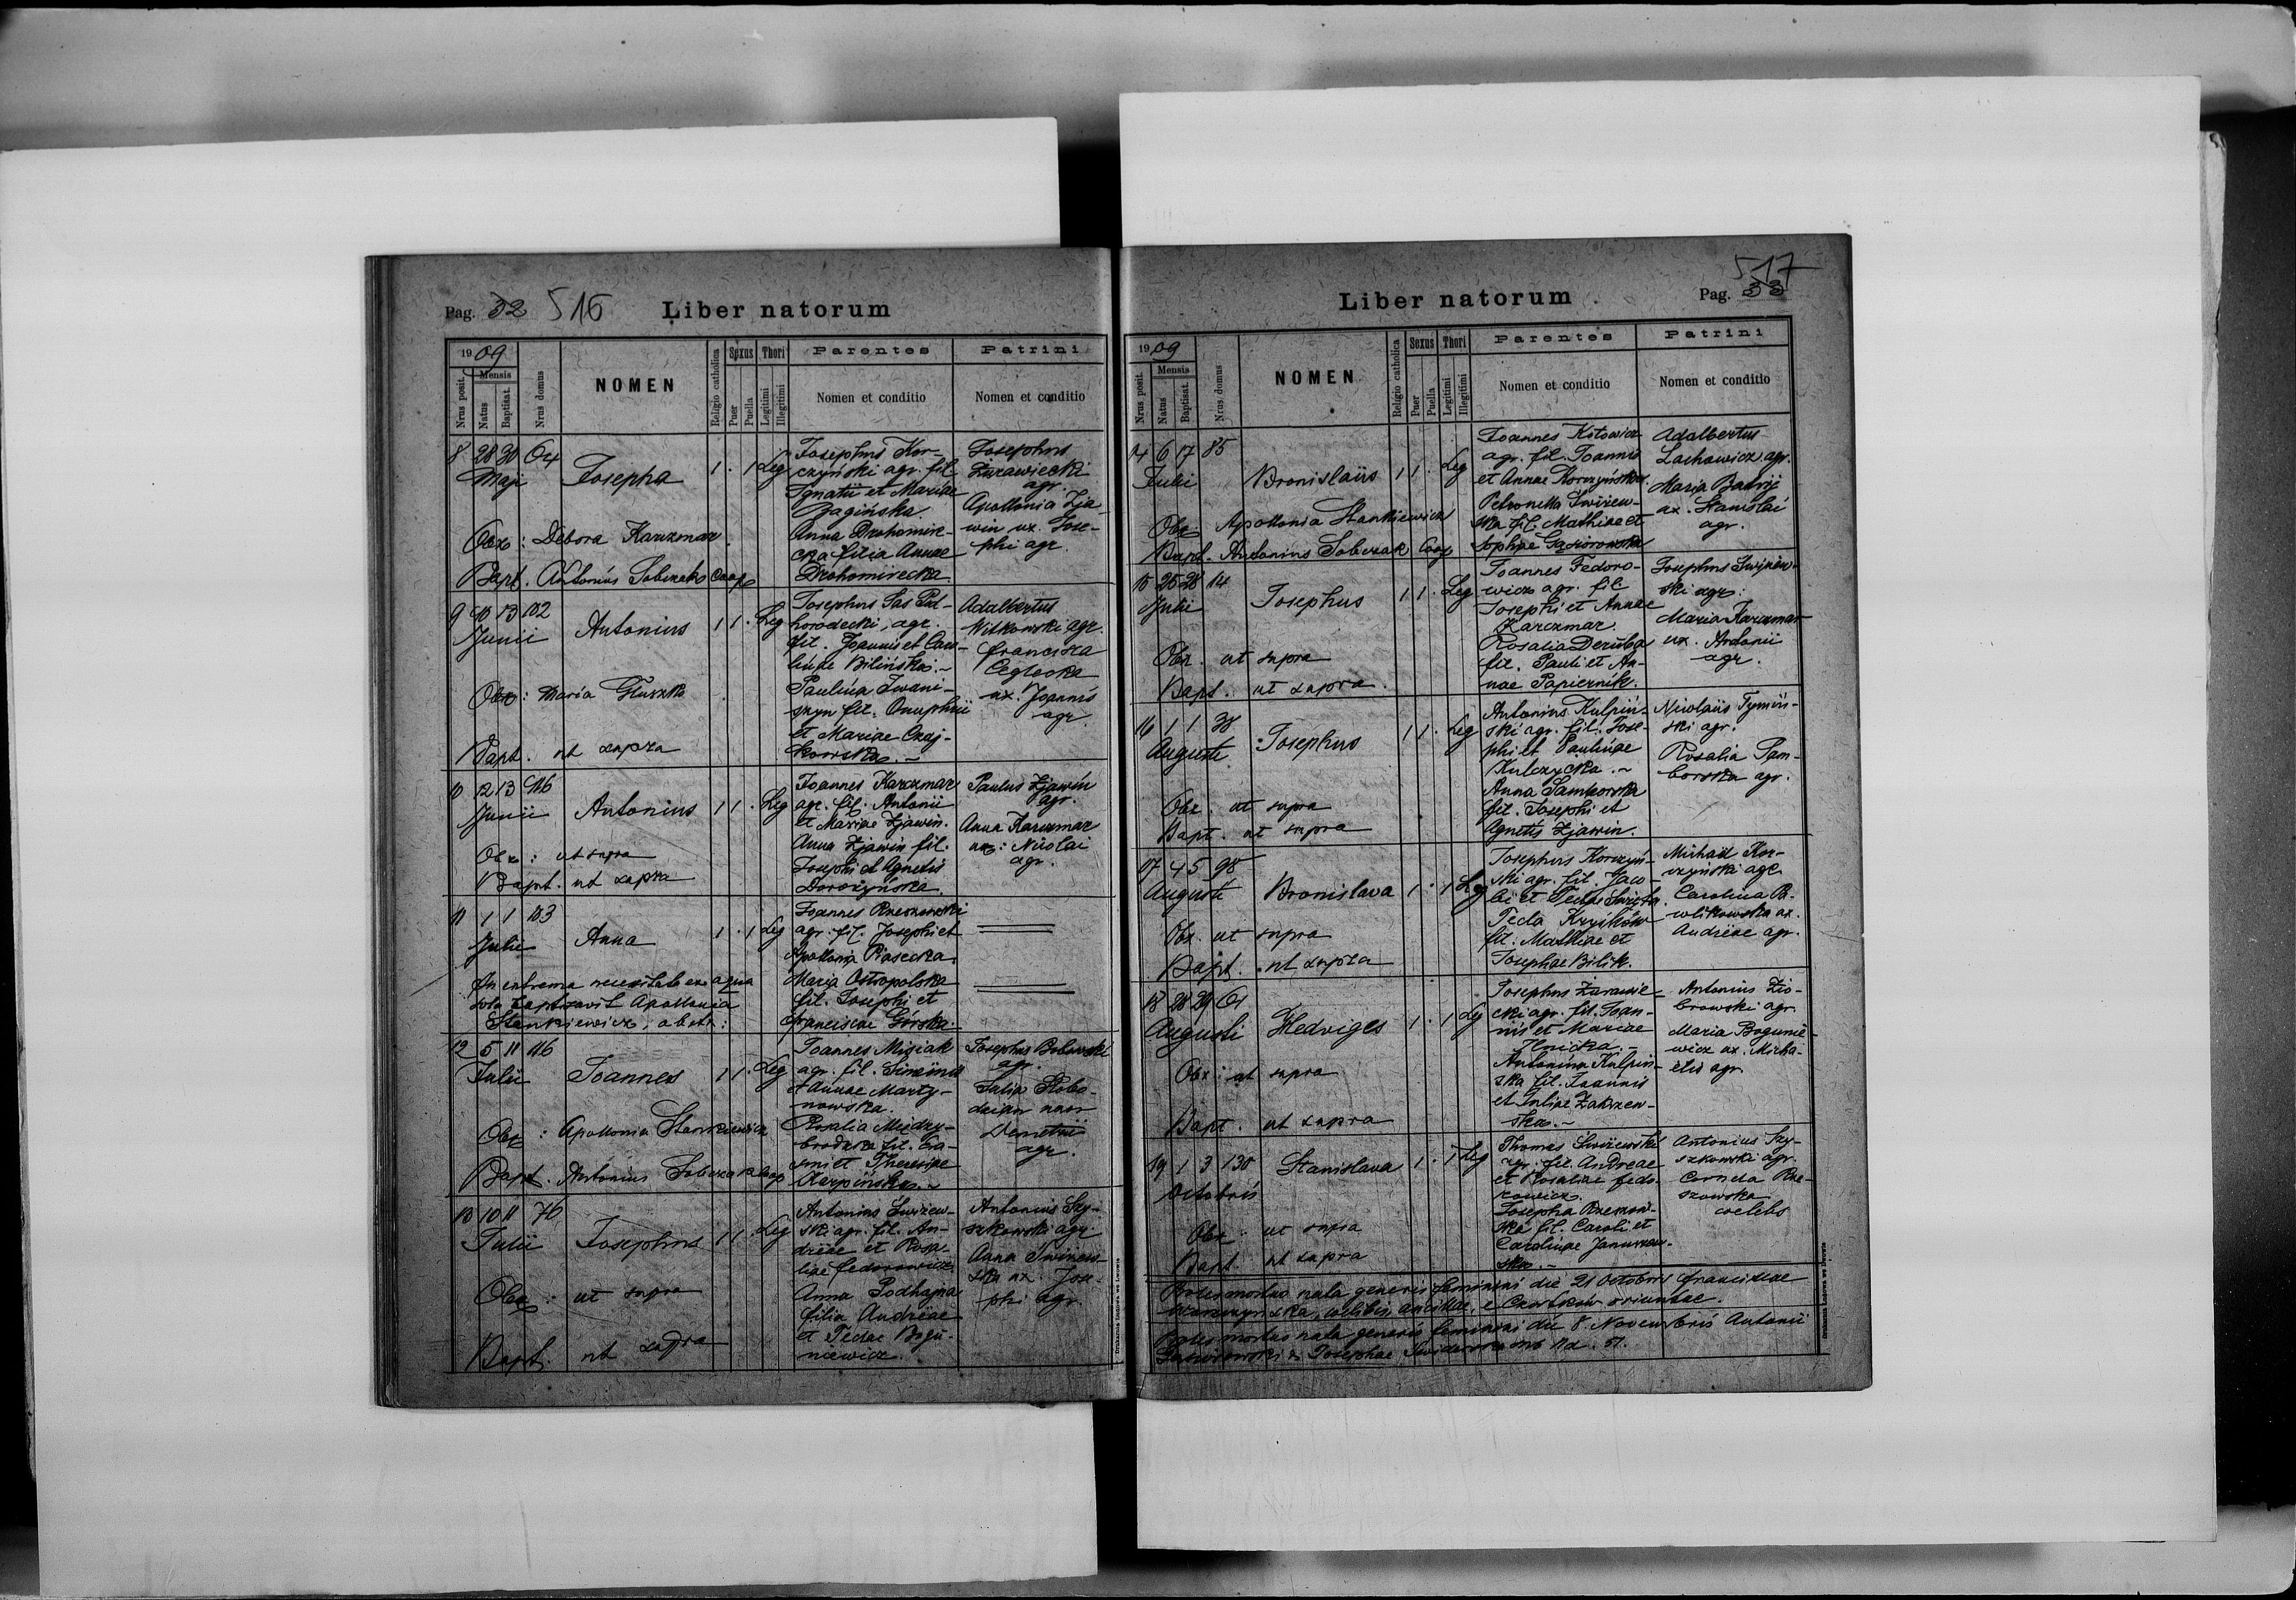 Pag. 32 516 Liber natorum
1909
Nrus posit.
Mensis
Natus
Baptisat.
Nrus domus
NOMEN
Religio catholica
Sexus
Puer
Puella
Thori
Legitimi
Illegitimi
Parentes
Nomen et conditio
Patrini
Nomen et conditio
8 28 30 64
Maji
Josepha
1 . 1 Leg
Josephus Kor-
czyński agr. fil.
Ignatii et Mariae
Zagińska.
Anna Drohomire-
cka filia Annae
Drohomirecka
Josephus
Żurawiecki
agr.
Apollonia Zja-
win ux. Jose-
phi agr.
Obx: Debora Karczmar
Bapt. Antonius Sobczak Coop
9 10 13 102
Junii
Antonius
1 1 . Leg
Josephus Sas Pod-
horodecki, agr.
fil. Joannis et Caro-
linae Bilińska.-
Paulina Iwani-
szyn fil. Onuphrii
et Mariae Czaj-
kowska.-
Adalbertus
Witkowski agr.
Francisca
Ceglecka
ux. Joannis
agr.
Obx: Maria Głuszko
Bapt. ut supra
10 12 13 116
Junii
Antonius
1 1 . Leg
Joannes Karczmar
agr. fil. Antonii
et Mariae Zjawin.
Anna Zjawin fil.
Josephi et Agnetis
Dorożyńska.
Paulus Zjawin
agr.
Anna Karczmar
ux: Nicolai
agr.
Obx: ut supra
Bapt. ut supra
11 1 1 103
Julii
Anna
1 . 1 Leg
Joannes Rzeszowski
agr. fil. Josephi et
Apollonia Piasecka.
Maria Ostropolska
fil. Josephi et
Franciscae Górska.
In extrema necessitate ex aqua
solo baptizavit Apollonia
Stankiewicz, obstr:
12 5 11 116
Julii
Joannes
1 1 . Leg
Joannes Misiak
agr. fil. Simeonis
et Annae Marty-
nowska.
Rosalia Między-
brodzka fil. Ca-
simi et Theresiae
Karpińska.-
Josephus Bobowski
agr.
Julia Słobo-
dzian uxor
Demetrii
agr.
Obx: Apollonia Stankiewicz
Bapt. Antonius Sobczak Coop
13 10 11 76
Julii
Josephus
1 1 . Leg
Antonius Świżew-
ski agr. fil. An-
dreae et Rosa-
liae Fedorowicz.
Anna Podhajna
filia Andreae
et Teclae Bogu-
niewicz.
Antonius Szy-
szkowski agr.
Anna Świżew-
ska ux. Jose-
phi agr.
Obx: ut supra
Bapt. ut supra
Drukarnia Ludowa we Lwowie
Liber natorum Pag. 33 517
1909
Nrus posit.
Mensis
Natus
Baptisat.
Nrus domus
NOMEN
Religio catholica
Sexus
Puer
Puella
Thori
Legitimi
Illegitimi
Parentes
Nomen et conditio
Patrini
Nomen et conditio
14 6 17 85
Julii
Bronislaus
1 1 . Leg
Joannes Kotowicz
agr. fil. Joannis
et Annae Korczyńska.
Petronella Świżew-
ska fil. Mathiae et
Sophiae Gąsiorowska
Adalbertus
Lachowicz agr.
Maria Batrij
ux. Stanislai
agr.
Obx. Apollonia Stankiewicz
Bapt. Antonius Sobczak Coop
15 25 28 14
Julii
Josephus
1 1 . Leg
Joannes Fedoro-
wicz agr. fil.
Josephi et Annae
Karczmar.
Rosalia Deruba
fil. Pauli et An-
nae Papiernik.
Josephus Świżew-
ski agr:
Maria Karczmar
ux. Antonii
agr.
Obx. ut supra
Bapt. ut supra.
16 1 1 38
Augusti
Josephus
1 1 . Leg
Antonius Kulpiń-
ski agr. fil. Jose-
phi et Paulinae
Kulczycka.-
Anna Samborska
fil. Josephi et
Agnetis Zjawin.
Nicolaus Tymiń-
ski agr.
Rosalia Sam-
borska agr.
Obx. ut supra
Bapt. ut supra
17 4 5 98
Augusti
Bronislava
1 . 1 Leg
Josephus Korczyń-
ski agr. fil. Jaco-
bi et Teclae Święta.
Tecla Krysików
fil. Mathiae et
Josephae Bilik.
Michael Kor-
czyński agr.
Carolina Pa-
wlikowska ux.
Andreae agr.
Obx. ut supra
Bapt. ut supra
18 28 29 61
Augusti
Hedviges
1 . 1 Leg
Josephus Żurawie-
cki agr. fil. Joan-
nis et Mariae
Ilnicka.-
Antonina Kulpiń-
ska fil. Joannis
et Juliae Zakrzew-
ska.-
Antonius Zio-
browski agr.
Maria Bogunie-
wicz ux. Micha-
elis agr.
Obx: ut supra
Bapt. ut supra
19 1 3 130
Octobris
Stanislava
1 . 1 Leg
Thomas Świżewski
agr. fil. Andreae
et Rosaliae Fedo-
rowicz.
Josepha Rzeszow-
ska fil. Caroli et
Carolinae Januszew-
ska.-
Antonius Szy-
szkowski agr.
Cornela Rze-
szowska
coelebs
Obx: ut supra
Bapt. ut supra
Proles mortua nata generis feminini die 21 Octobris Franciscae
ska, coelibis ancillae, e Czortków oriundae.
Proles mortua nata generis feminini die 8. Novembris Antonii
et Josephae Świderska sub Nd. 51.
Drukarnia Ludowa we Lwowie